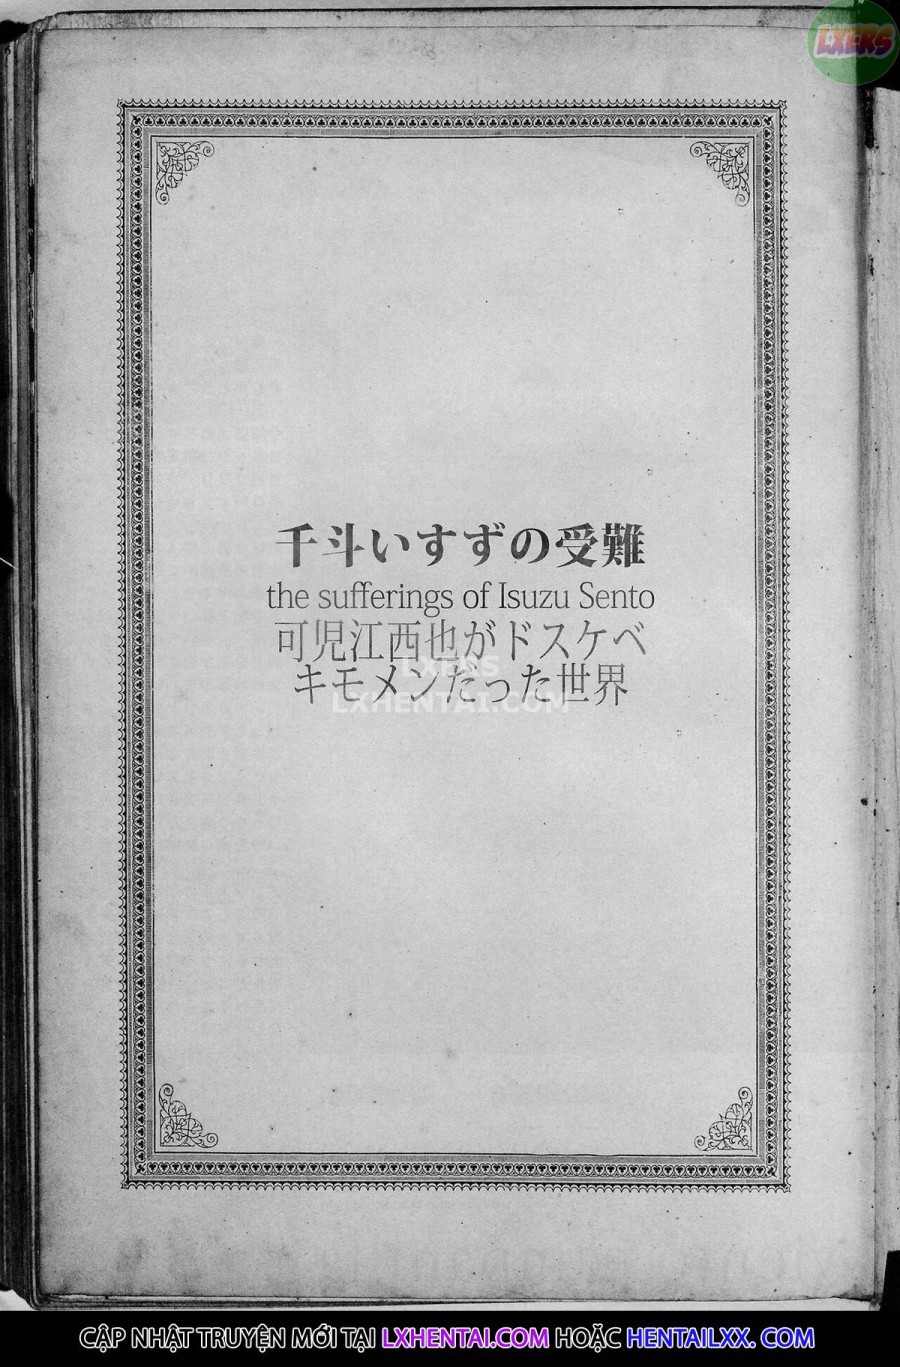 LXERS
千斗いすずの受難
the sufferings of Isuzu Sento
可児江西也がドスケベ
キモメンだった世界
LXERS
LXHENTAI.COM
CẬP NHẬT TRUYỆN MỚI TẠI LXHENTAI.COM HOẶC HENTAILXX. COM